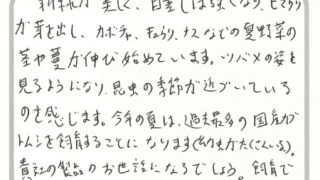 新緑が美しく、日差しは強くなり、ヒマワリ
が芽を出し、カボチャ、キュウリ、ナスなどの夏野菜の
茎や蔓が伸び始めています。ツバメの姿を
見るようになり、昆虫の季節が近づいている
のを感じます。今年の夏は、過去最多の国産カブ
トムシを飼育することになります(幼虫がたくさんいる)。
貴社の製品のお世話になるでしょう。飼育で